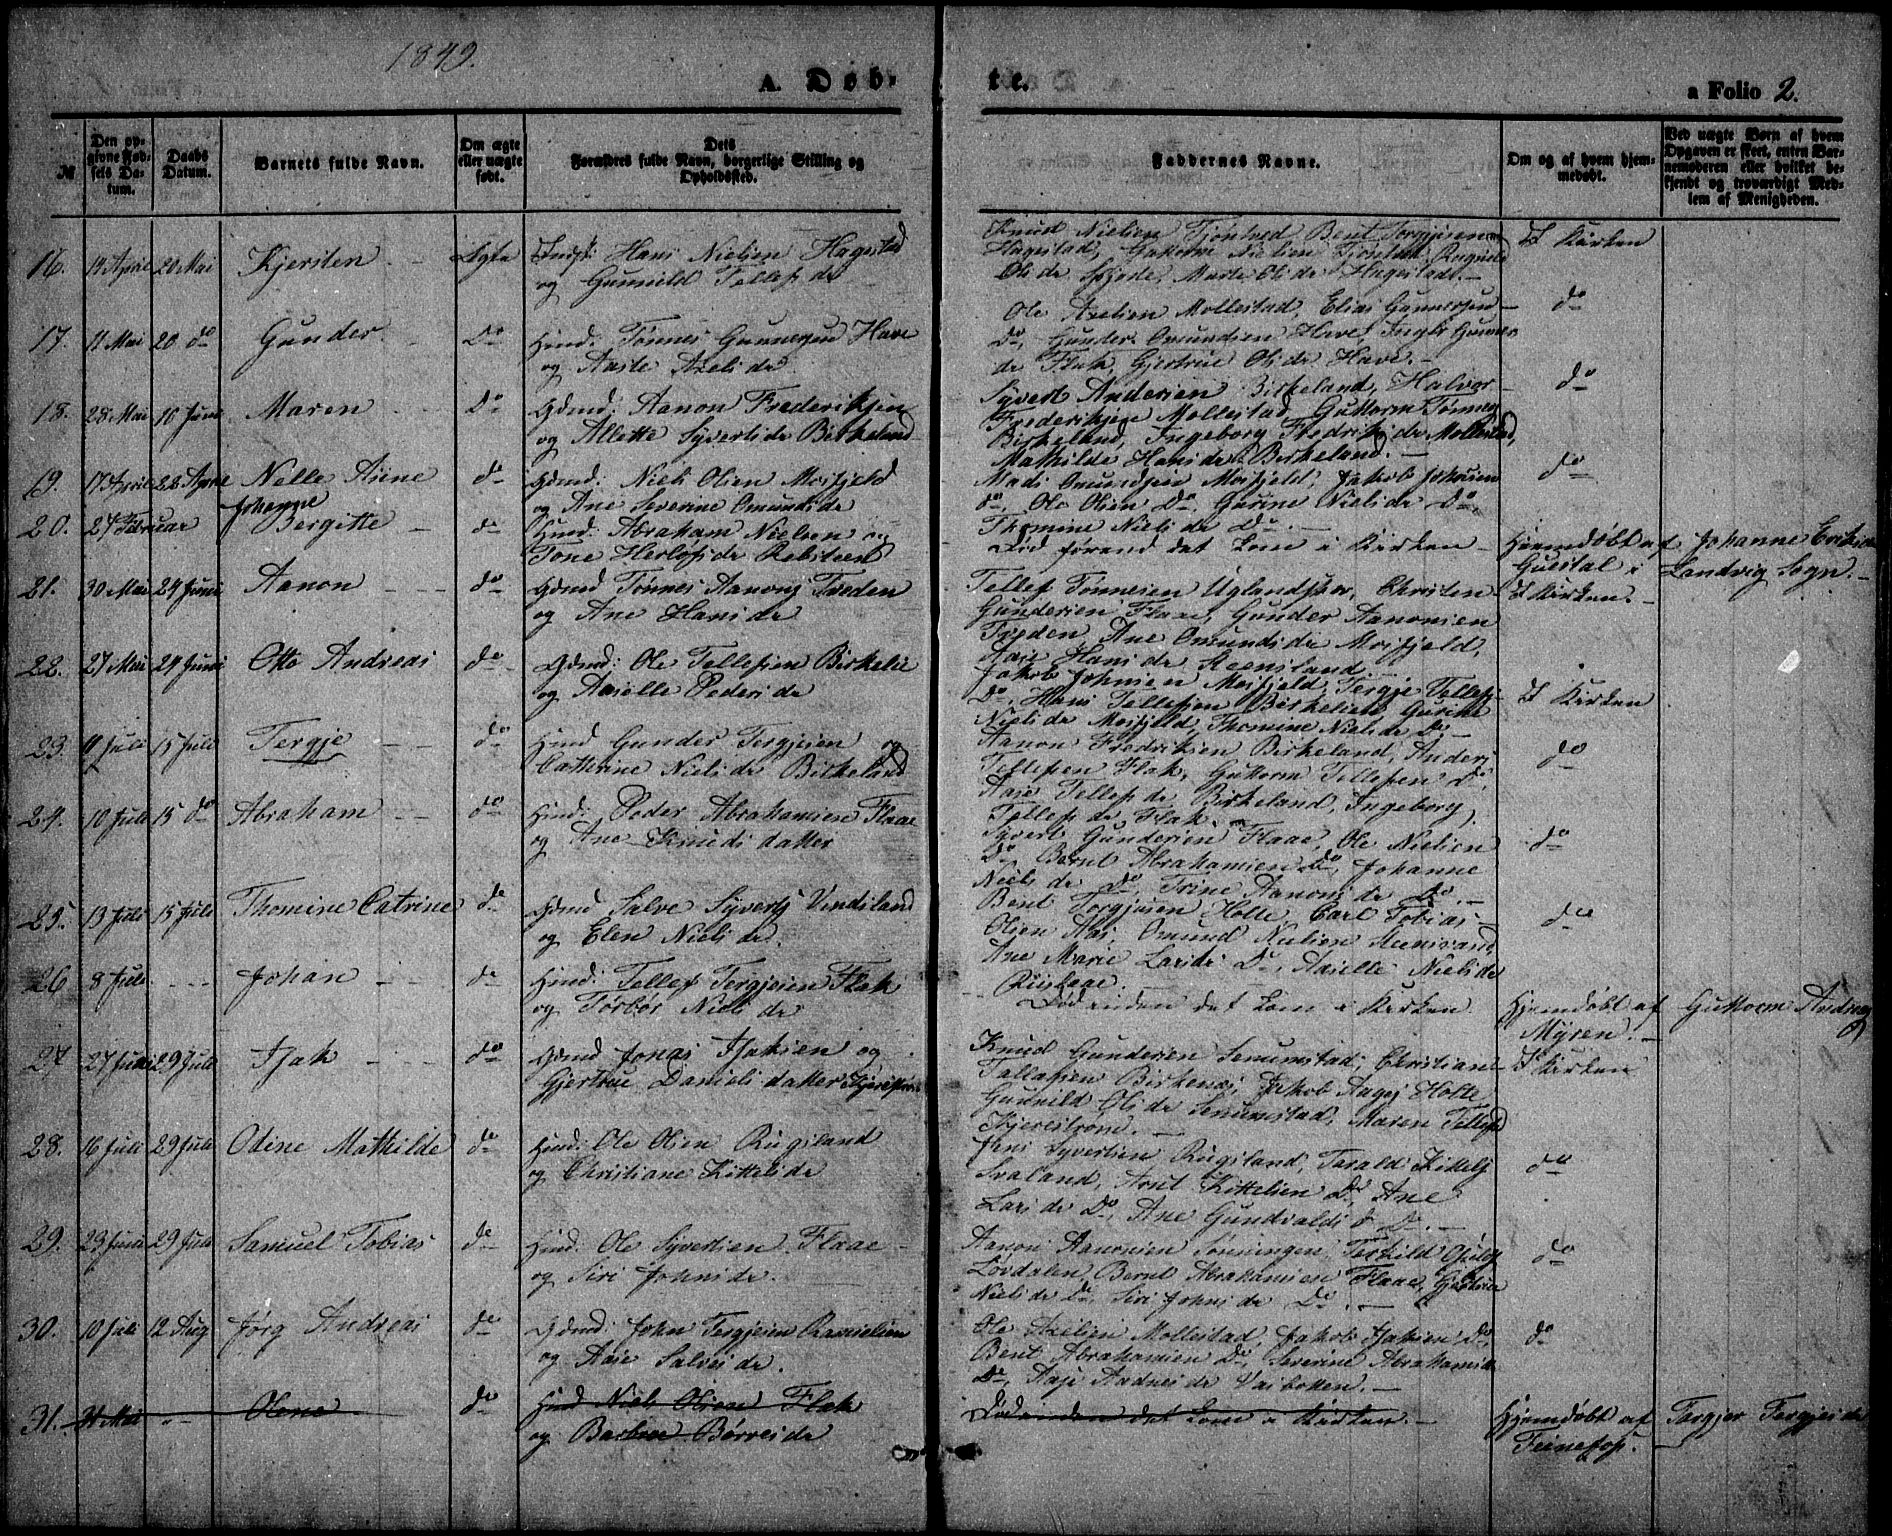 1849.
A. Døb-
te.
a Folio 2.
№
Den op-
givne Fød-
sels Da-
tum.
Daabs
Datum.
Barnets fulde Navn.
Om ægte
eller uægte
født.
Dets
Forældres fulde Navn, borgerlige Stilling og
Opholdssted.
Faddernes Navne.
Om og af hvem hjem-
medøbt.
Ved uægte Børn af hvem
Opgaven er skeet, enten Bar-
nemoderen eller hvilket be-
kjendt og troværdigt Med-
lem af Menigheden.
16. 14 April 20 Mai Kjersten Ægte Hans Nielsen Hagestad
og Gunnild Tellefsdr
Knud Nielsen Tjønved Bent Torgjusen
Hagestad, Guttorm Nielsen
Olsdr Marte Olsdr Hagestad.
I Kirken
17. 11 Mai 20 do Gunder Do Huusd: Tønnes Gunnersen Have
og Aaste Axelsdr
Ole Axelsen Mollestad, Elias Gunnersen
Do, Gunder Omundsen Have,
dr Flak, Gjertrue Olsdr Have.
do
18. 28 Mai 16 Juni Maren Do Gdmd: Aanon Frederiksen
og Allette Syvertsdr Birkeland
Syvert Andersen Birkeland, Halvor
Frederiksen Mollestad, Guttorm Tønnes
Birkeland, Ingeborg Fredriksdr Mollestad,
Mathilde Hansdr Birkeland.
do
19. 17 April 22 April Nelle Asine do Gdmd: Niels Olsen Moisfjeld
og Ane Severine Omundsdr
Mads Omundsen Moisfjeld, Jakob Johnsen
do, Ole Olsen Do, Gurine Nielsdr Do
Thomine Nielsdr Do.
do
20. 27 Februar Johanne
Bergitte do Huusd: Abraham Nielsen og
Tone Herlofsdr Rebsteen
Død førend det kom i Kirken
Hjemdøbt af Johanne Eriksdr
i Landvig Sogn.
21. 30 Mai 24 Juni Aanon do Gdmd Tønnes Aanons Treden
og Ane Hansdr
Tellef Tønnesen Uglandskar, Christen
Gundersen Flaae, Gunder Aanonsen
Treden, Ane Omundsdr Moisfjeld,
Aase Hansdr Steensland
I Kirken.
22. 27 Mai 24 Juni Otto Andreas do Gdmd: Ole Tellefsen Birkelie
og Asielle Pedersdr
Jakob Johnsen Moisfjeld, Tergje Tellefs
Do, Hans Tellefsen Birkelien Gurine
Nielsdr Moisfjeld, Thomine Nielsdr Do.
I Kirken
23. 11 Juli 15 Juli Tergje do Huusd Gunder Tergjesen og
Cathrine Nielsdr Birkeland
Aanon Fredriksen Birkeland, Anders
Tellefsen Flak, Guttorm Tellefsen Do,
Aase Tellefsdr Birkeland, Ingeborg
Tellefsdr Flak.
do
24. 10 Juli 15 do Abraham do Huusd: Peder Abrahamsen Flaae
og Ane Knudsdatter
Syvert Gundersen Flaae, Ole Nielsen
Do Bernt Abrahamsen Do, Johanne
Nielsdr Do, Trine Aanonsdr Do.
do
25. 13 Juli 15 Juli Thomine Catrine do Gdmd Salve Syverts Vindsland
og Elen Nielsdr.
Bent Torgjusen Holte, Carl Tobias
Olsen Aas, Omund Nielsen
Ane Marie Larsdr Do, Asielle Nielsdr
do
26 8 Juli Johan do Huusd: Tellef Tergjesen Flak
og Torbor Nielsdr
Død inden det kom i Kirken
Hjemdøbt af Guttorm Andreas
Myren.
27. 27 Juni 29 Juli Isak do Gdmd Jonas Isaksen og
Gjertrue Danielsdatter Kjerestrøm
Knud Gundersen Senumstad, Christian
Tallaksen Birkenæs, Jakob Aages Holte
Gunnild Olsdr Senumstad, Maren Tellefsd
Kjerestrøm.
I Kirken
28. 16 Juli 29 Juli Odine Mathilde do Huusd: Ole Olsen Rugsland
og Christiane Kittelsdr
Jens Syvertsen Rugsland, Tarald Kittels
Svaland, Arnt Kittelsen Do, Ane
Larsdr Do, Ane Gundvaldsdr Do.
do
29. 23 Juni 29 Juli Samuel Tobias do Huusd: Ole Syvertsen Flaae
og Siri Johnsdr.
Aanon Aanonsen Tønningen, Terkild
Lovdalen, Bernt Abrahamsen Flaae, Gjertrue
Nielsdr Do, Siri Johnsdr Do.
do
30. 10 Juli 12 Aug Jørg Andreas do Gdmd: John Tergjesen
og Aase Salvesdr.
Ole Axelsen Mollestad, Jakob Isaksen Do,
Bent Abrahamsen Do, Severine Abrahamsdr
Do, Aase Aadnesdr Vasbotten.
do
31. 31 Mai Olene do Huusd Niels Olsen Flak
og Barbro Børresdr
Død inden det kom i Kirken.
Hjemdøbt af Torgjer Tergjesdr